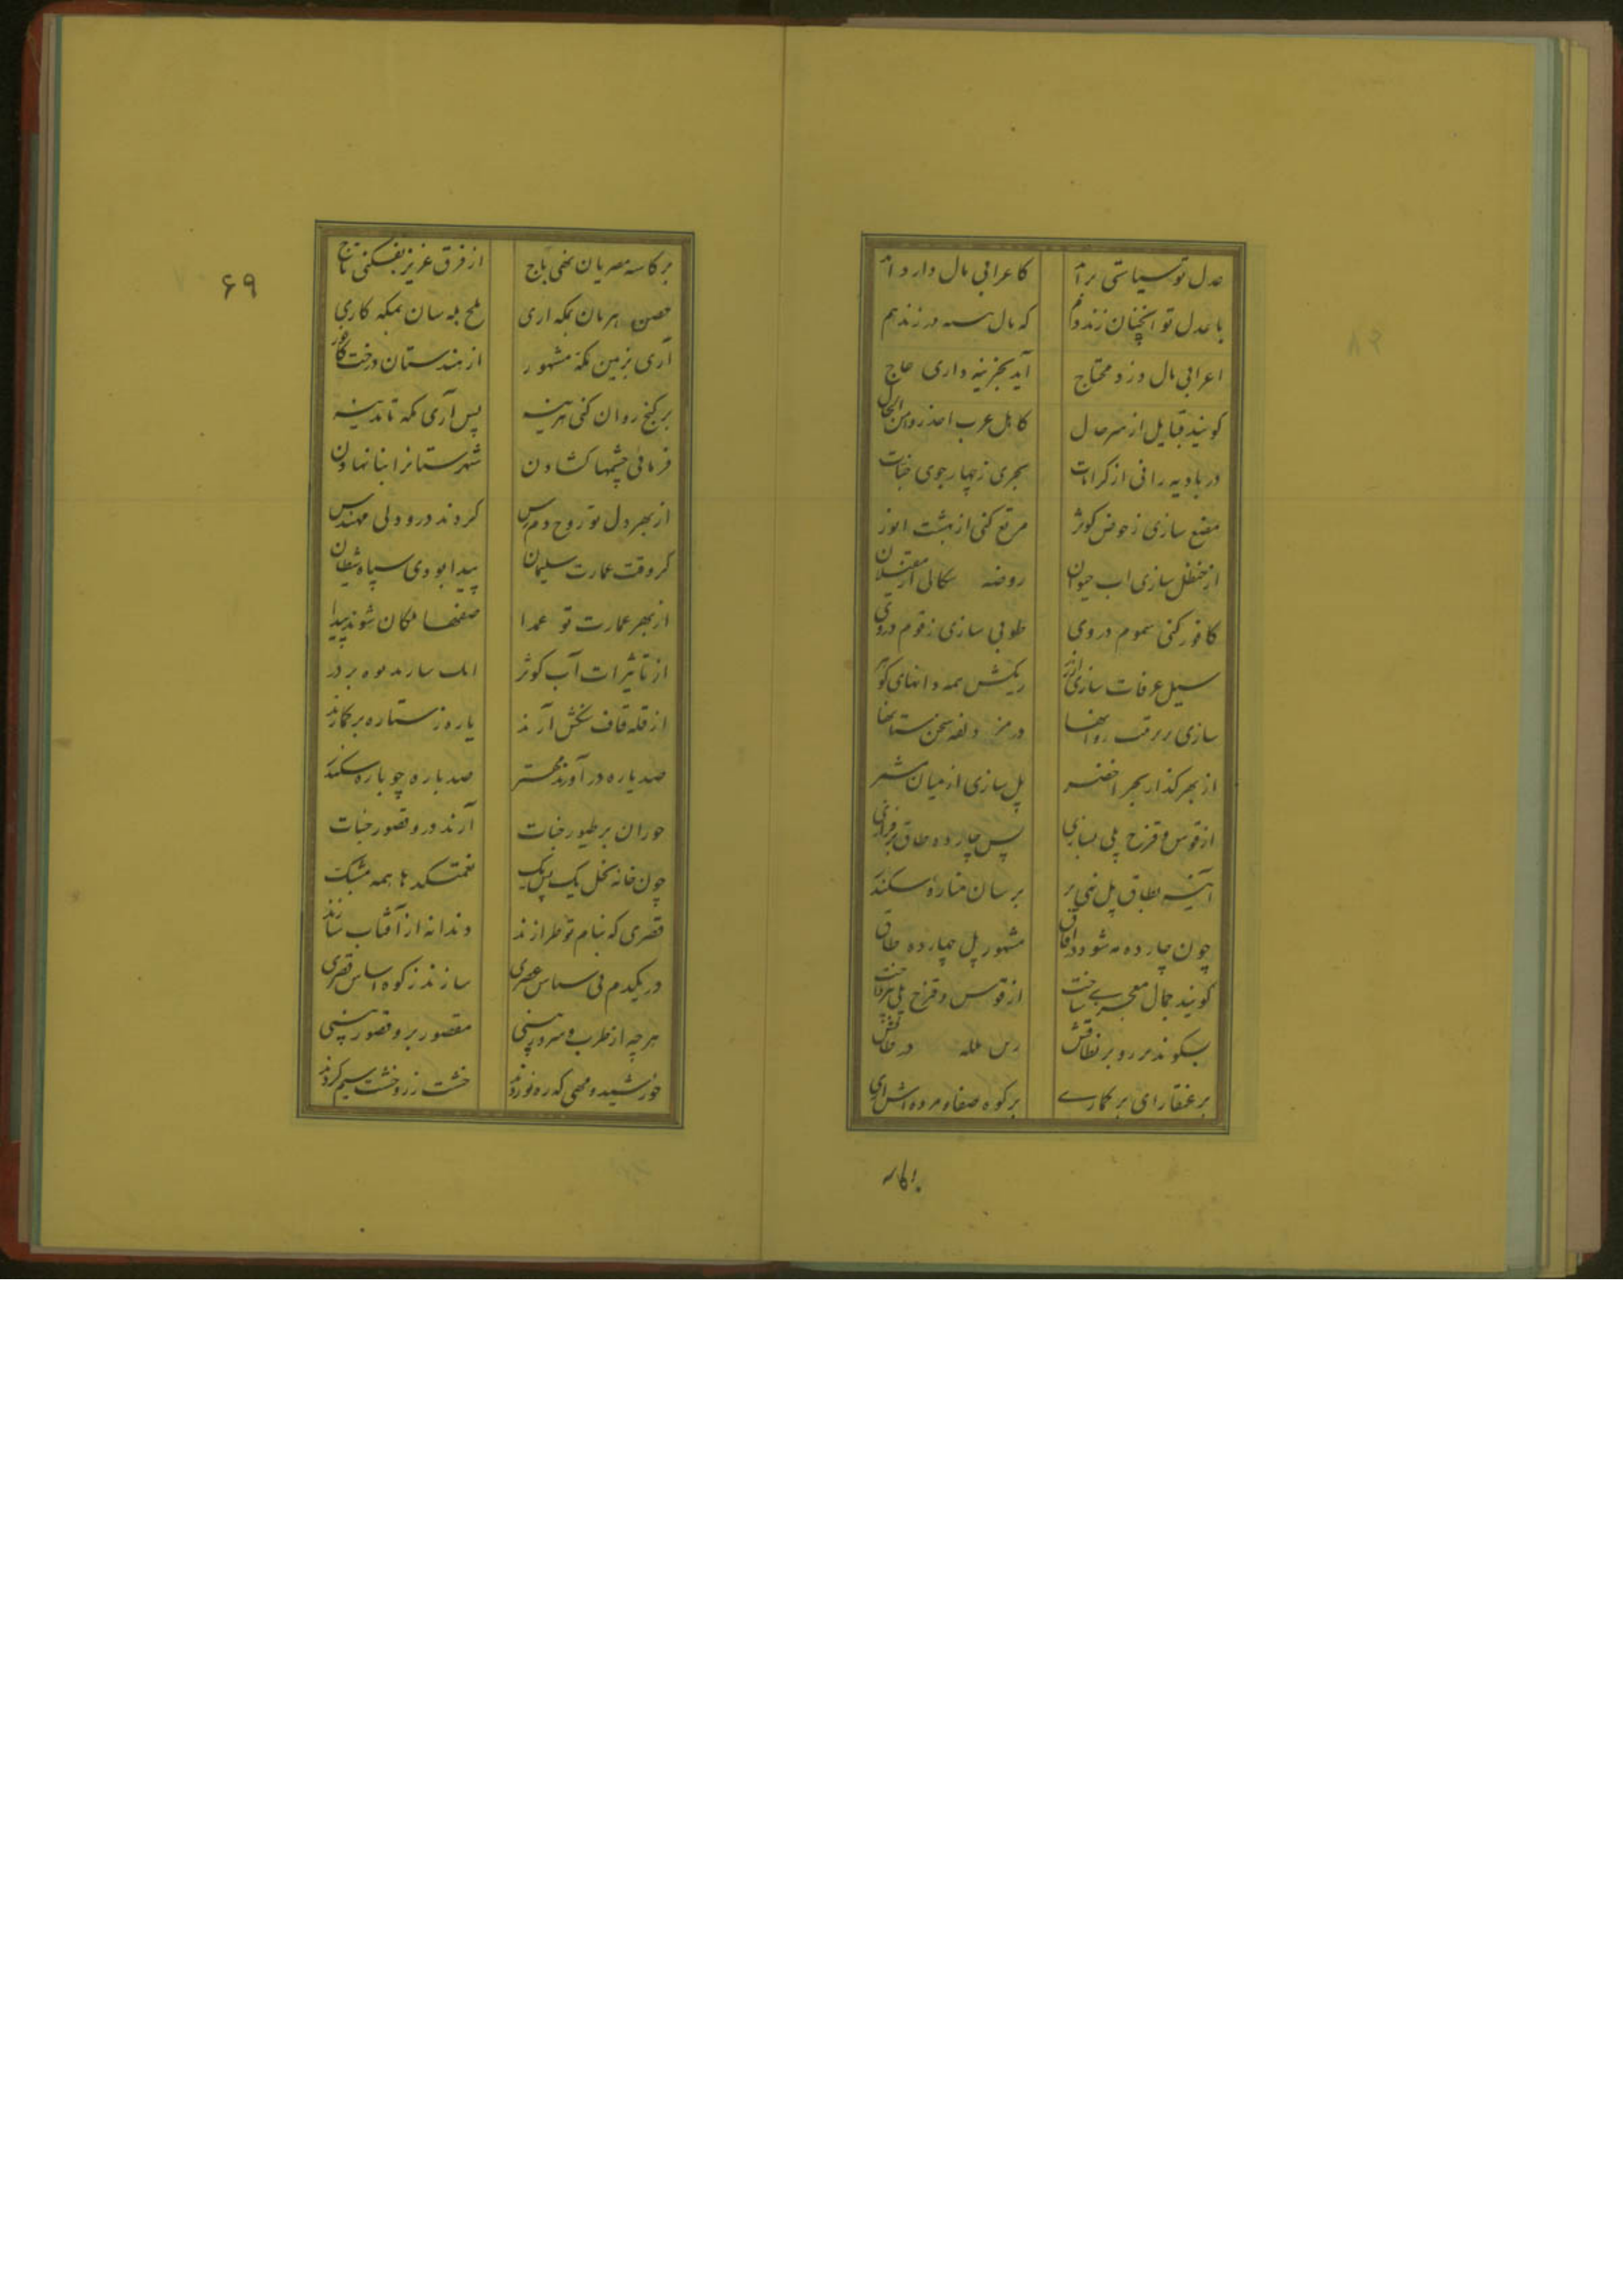 عدل تو سیاستی برآمد کاعرابی مال دارد آمد
با عدل تو آنچنان زند دم که مال در زند هم
اعرابی مال دزد محتاج آید بخزینه داری حاج
گویند قبایل از سر حال کاهل عرب احذروا من الحال
در بادیه رانی از کرامات بحری ز چهار جوی جنات
مصنع سازی ز حوض کوثر مرتع کنی از بهشت انور
از حنظل سازی آب حیوان روضه از مغیلان
کافور کنی سموم در وی طوبی سازی زقوم در وی
سیل عرفات سازی ریگش همه دانهای گوهر
سازی بر برقت روانها در مز دلفه ستانها
از بهر گذار بحر اخضر پل سازی از میان
از قوس و قزح پلی بسازی پس چارده طاق برفرازی
آیینه بطاق پل نهی بر برسان مناره سکندر
چون چارده مه شود در آفاق مشهور پل چهارده طاق
گویند جمال معجزی ساخت از قوس و قزح پلی برافراخت
بر نطاقش در طاقش
بر عنقا رای برگماری برکوه صفا و مروه اش آری
برکاسه
۶۹
برکاسه مصریان نهی باج از فرق عزیز بفکنی تاج
هرمان بمکه آری بلسان بمکه کاری
آری بزمین مکه مشهور از هندستان درخت کافور
بر گنج روان کنی هزینه پس آری مکه تا مدینه
فرمائی چشمها گشادن شهرستانرا بنا نهادن
از بهر دل تو روح و مدرس گردند درودلی مهندس
گر وقت عمارت سلیمان پیدا بودی سپاه شیطان
از بهر عمارت تو عمدا صفها ملکان شوند پیدا
از تاثیرات آب کوثر سازند بر در
از قله قاف آرند یاره ز ستاره برگمارند
صد یاره در آورند صد باره چو باره سکندر
حوران بر طیور جنات آرند در و قصور جنات
چون خانه نحل یک پس یک نعمتکدها همه مشبک
قصری که بنام تو طرازند دندانه از آفتاب سازند
در یکدم بی سپاس عصری سازند ز کوه اساس قصری
هر چه از طرب و سرور بینی مقصور برو قصور بینی
خورشید و مهی که ره نوردند خشت زر و خشت سیم کردند